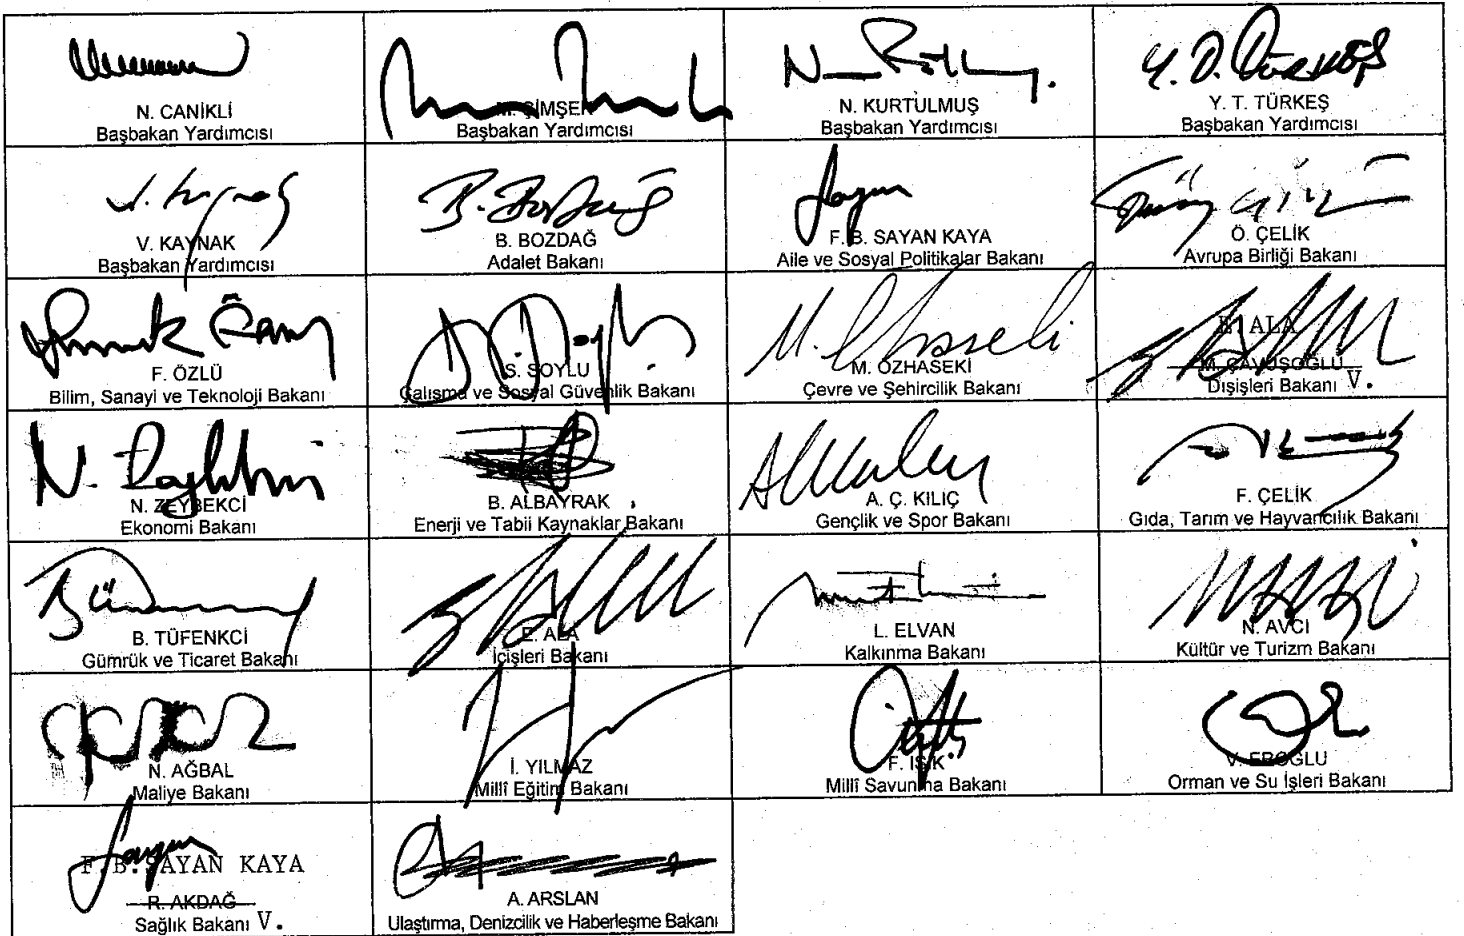 N. CANİKLİ
Başbakan Yardımcısı
M. ŞİMŞEK
Başbakan Yardımcısı
N. KURTULMUŞ
Başbakan Yardımcısı
Y. T. TÜRKEŞ
Başbakan Yardımcısı
V. KAYNAK
Başbakan Yardımcısı
B. BOZDAĞ
Adalet Bakanı
F. B. SAYAN KAYA
Aile ve Sosyal Politikalar Bakanı
Ö. ÇELİK
Avrupa Birliği Bakanı
F. ÖZLÜ
Bilim, Sanayi ve Teknoloji Bakanı
S. SOYLU
Çalışma ve Sosyal Güvenlik Bakanı
M. ÖZHASEKİ
Çevre ve Şehircilik Bakanı
E. ALA
M. ÇAVUŞOĞLU
Dışişleri Bakanı V.
N. ZEYBEKCİ
Ekonomi Bakanı
B. ALBAYRAK
Enerji ve Tabii Kaynaklar Bakanı
A. Ç. KILIÇ
Gençlik ve Spor Bakanı
F. ÇELİK
Gıda, Tarım ve Hayvancılık Bakanı
B. TÜFENKCİ
Gümrük ve Ticaret Bakanı
E. ALA
İçişleri Bakanı
L. ELVAN
Kalkınma Bakanı
N. AVCI
Kültür ve Turizm Bakanı
N. AĞBAL
Maliye Bakanı
İ. YILMAZ
Millî Eğitim Bakanı
F. IŞIK
Millî Savunma Bakanı
V. EROĞLU
Orman ve Su İşleri Bakanı
F. B. SAYAN KAYA
R. AKDAĞ
Sağlık Bakanı V.
A. ARSLAN
Ulaştırma, Denizcilik ve Haberleşme Bakanı